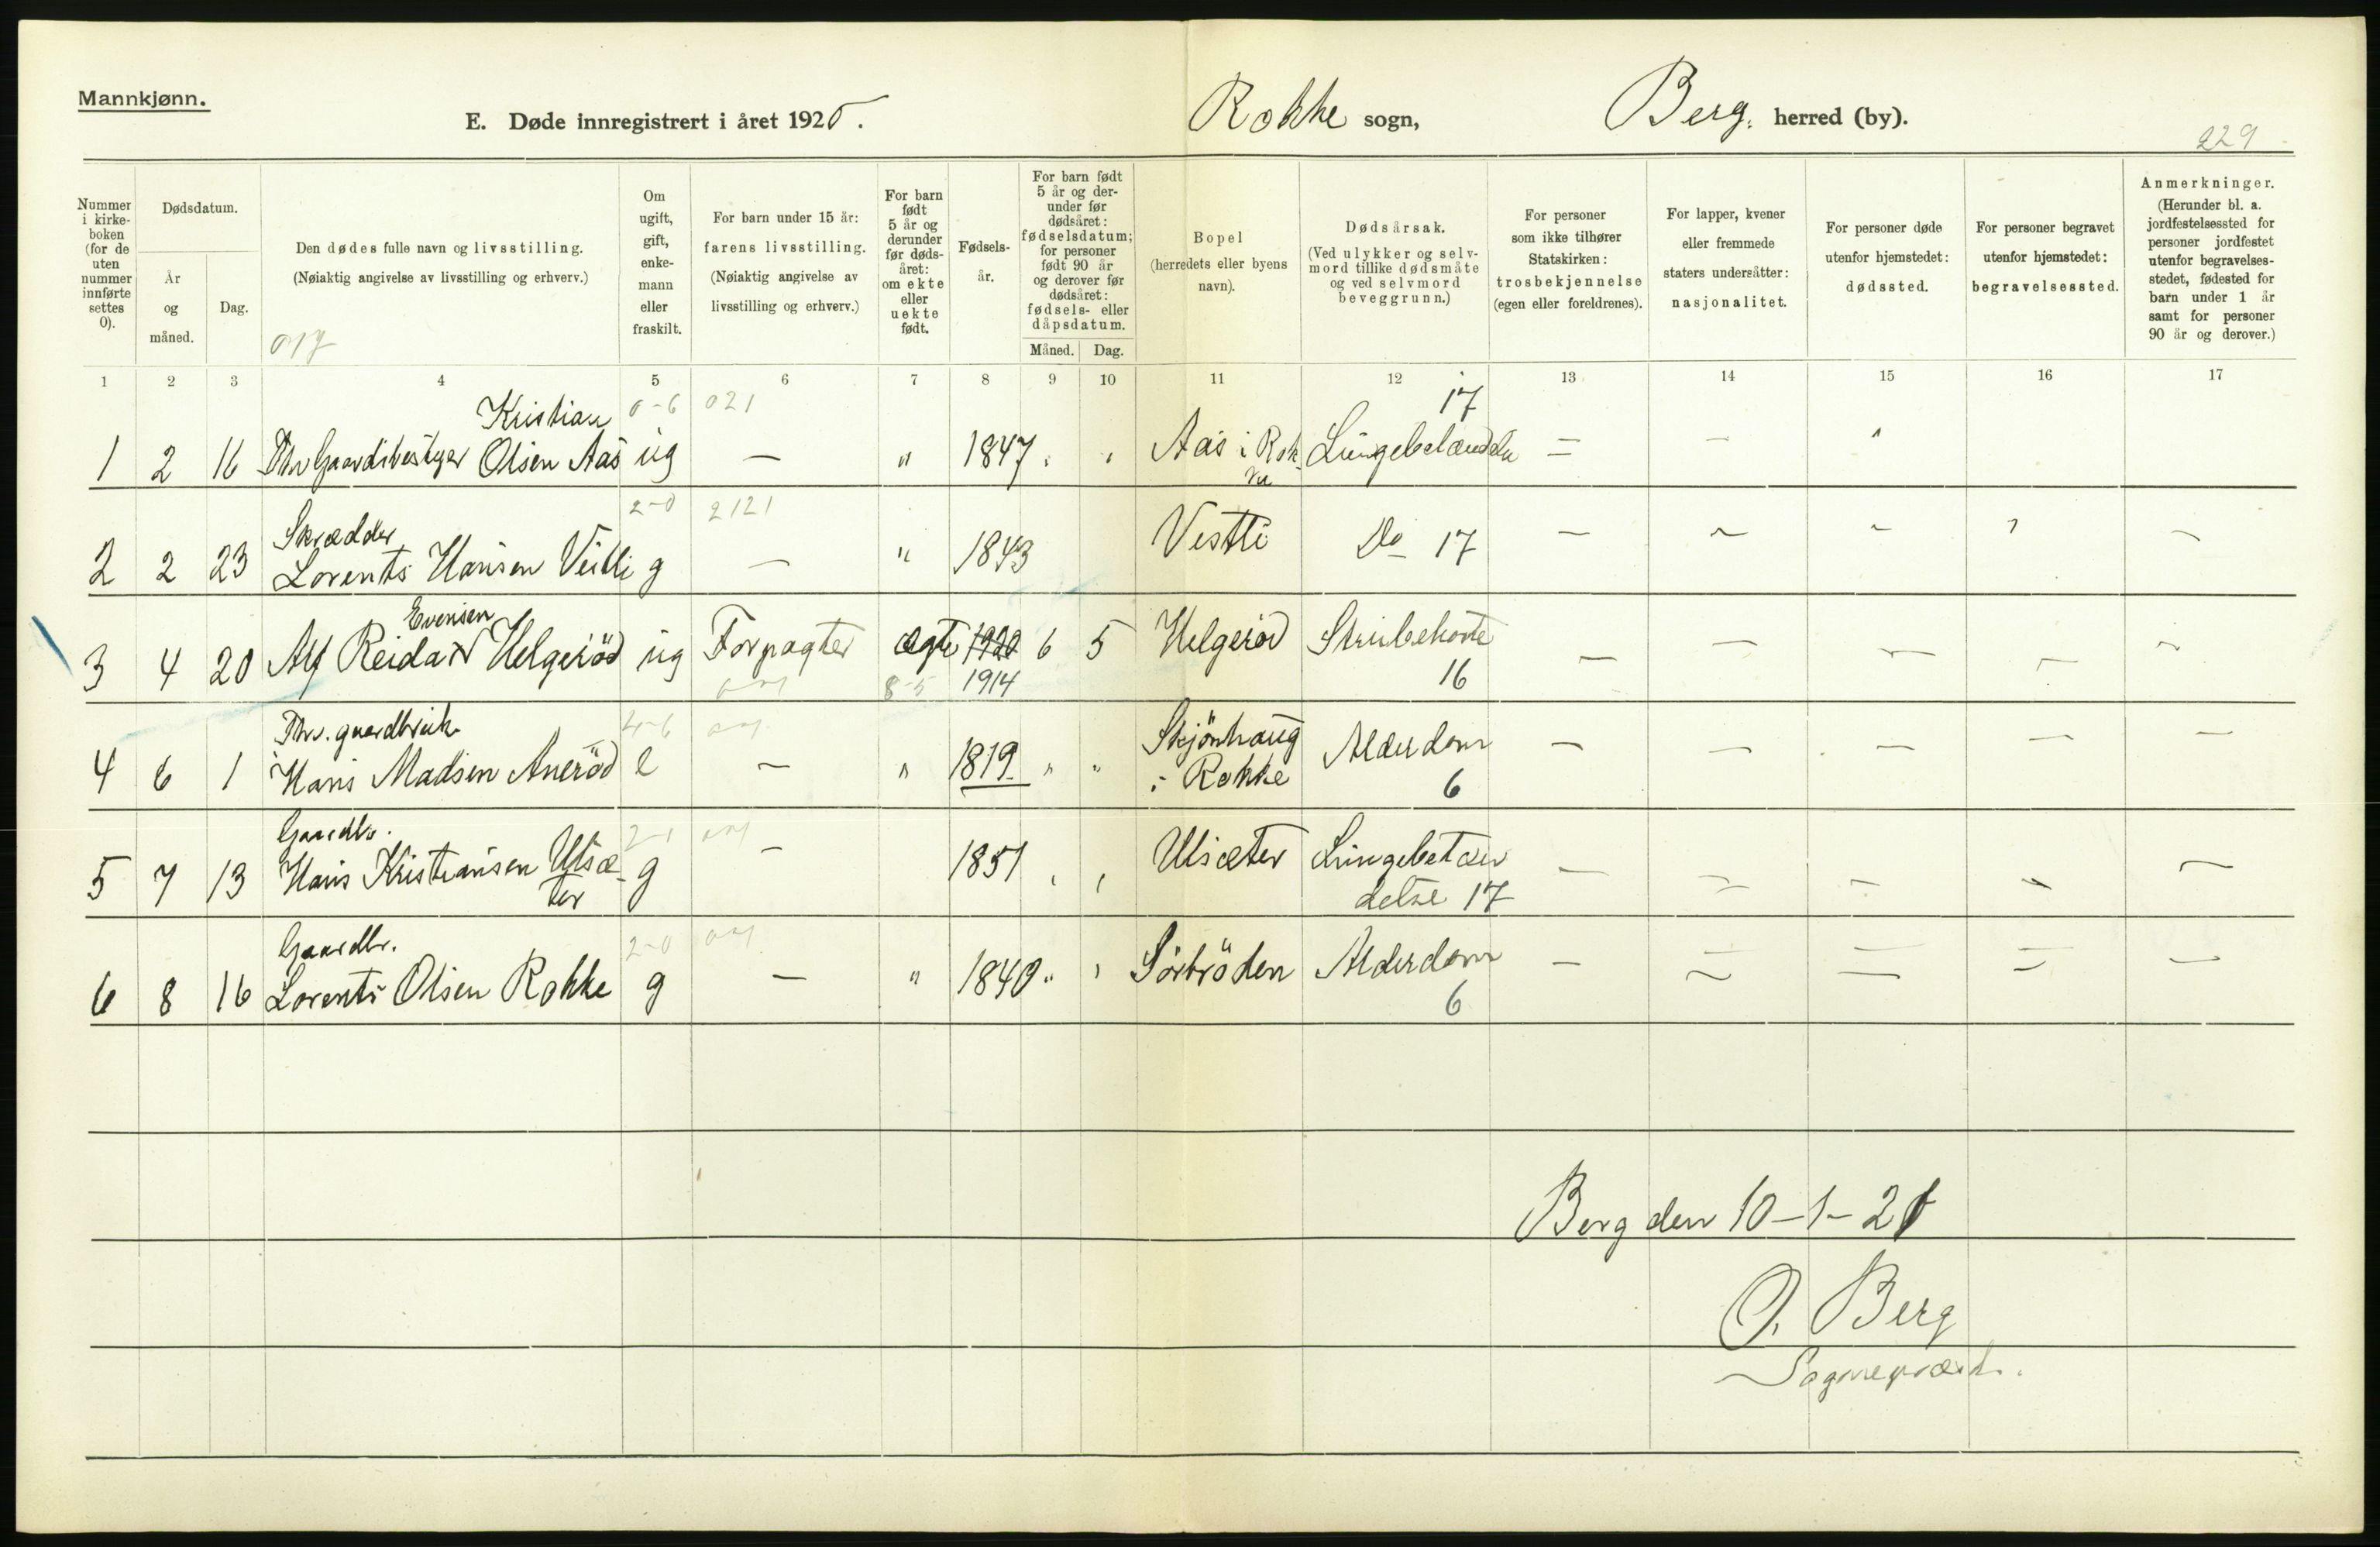 Mannkjønn.
E. Døde innregistrert i året 1920.
Rokke sogn,
Berg. herred (by).
229
Nummer i kirke- boken (for de uten nummer innførte settes 0).
Dødsdatum.
År og måned.
Dag.
Den dødes fulle navn og livsstilling.
(Nøiaktig angivelse av livsstilling og erhverv.)
Om ugift, gift, enke- mann eller fraskilt.
For barn under 15 år: farens livsstilling.
(Nøiaktig angivelse av livsstilling og erhverv.)
For barn født 5 år og derunder før døds- året: om ekte eller uekte født.
Fødsels- år.
For barn født 5 år og der- under før dødsåret: fødselsdatum; for personer født 90 år og derover før dødsåret: fødsels- eller dåpsdatum.
Måned. Dag.
Bopel (herredets eller byens navn).
Dødsårsak.
(Ved ulykker og selv- mord tillike dødsmåte og ved selvmord beveggrunn.)
For personer som ikke tilhører Statskirken: trosbekjennelse (egen eller foreldrenes).
For lapper, kvener eller fremmede staters undersåtter: nasjonalitet.
For personer døde utenfor hjemstedet: dødssted.
For personer begravet utenfor hjemstedet: begravelsessted.
Anmerkninger.
(Herunder bl. a. jordfestelsessted for personer jordfestet utenfor begravelses- stedet, fødested for barn under 1 år samt for personer 90 år og derover.)
1 2 3 4 5 6 7 8 9 10 11 12 13 14 15 16 17
Kristian 0-6 021 17
1 2 16 Olsen Aas ug — " 1847 Aas i Rok- — —
Skrædder 2-0 2121
2 2 23 Lorents Hansen Vestli g — " 1843 Vestli Do 17 — — —
Evensen
3 4 20 Alf Reidar Helgeröd ug Forpagter ægte 1920 6 5 Helgeröd Strubehoste — — — — —
8-5 1914 16
Fhv. gaardbruk. 4-6
4 6 1 Hans Madsen Aneröd e — " 1819 " " Skjönhaug i Rokke Alderdom 6 — — — — —
Gaardbr. 2-1
5 7 13 Hans Kristiansen Ulsæ- ter g — 1851 Ulsæter Lungebetæn delse 17 — — — — —
Gaardbr. 2-0
6 8 16 Lorents Olsen Rokke g — " 1840 " Sörbröden Alderdom 6 — — — — —
Berg den 10-1-21
O. Berg
Sogneprest.